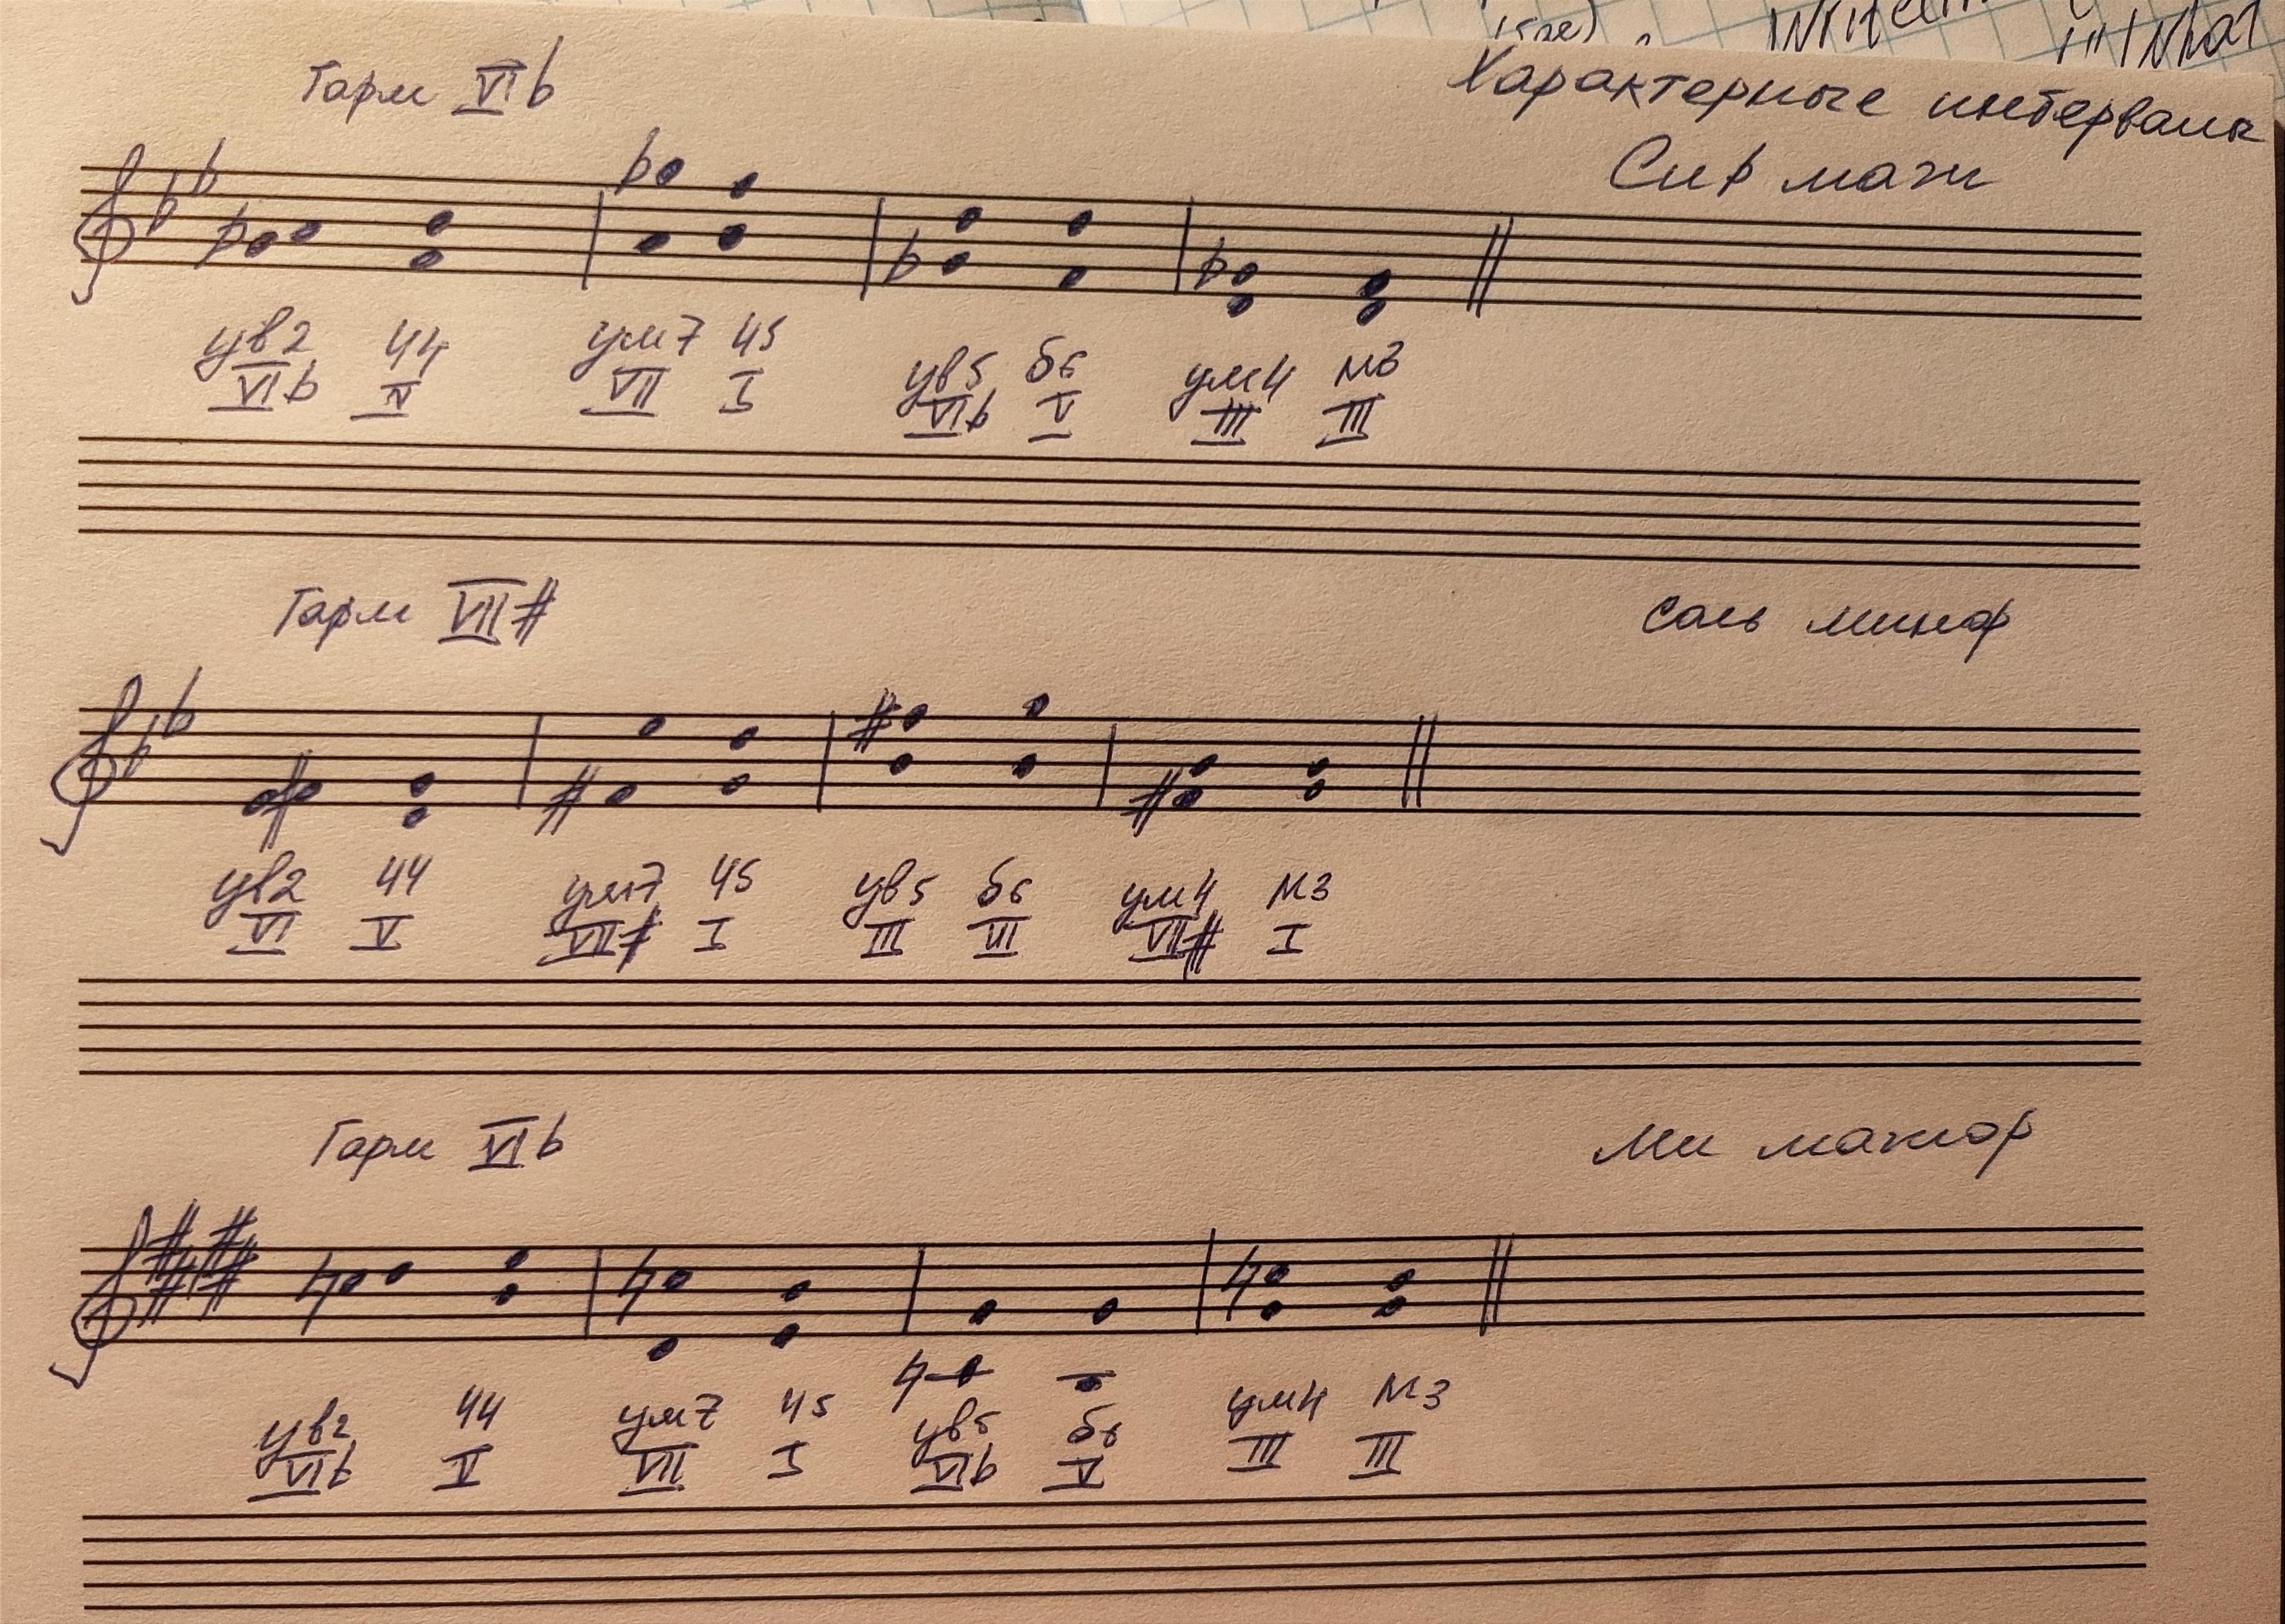 Характерные интервалы
Гарм VI♭
Си♭ маж
ув2 ч4 ум7 ч5 ув5 б6 ум4 м3
VI♭ V VII I VI♭ V III III
Гарм VII#
соль минор
ув2 ч4 ум7 ч5 ув5 б6 ум4 м3
VI V VII# I III III VII# I
Гарм VI♭
Ми мажор
ув2 ч4 ум7 ч5 ув5 б6 ум4 м3
VI♭ V VII I VI♭ V III III